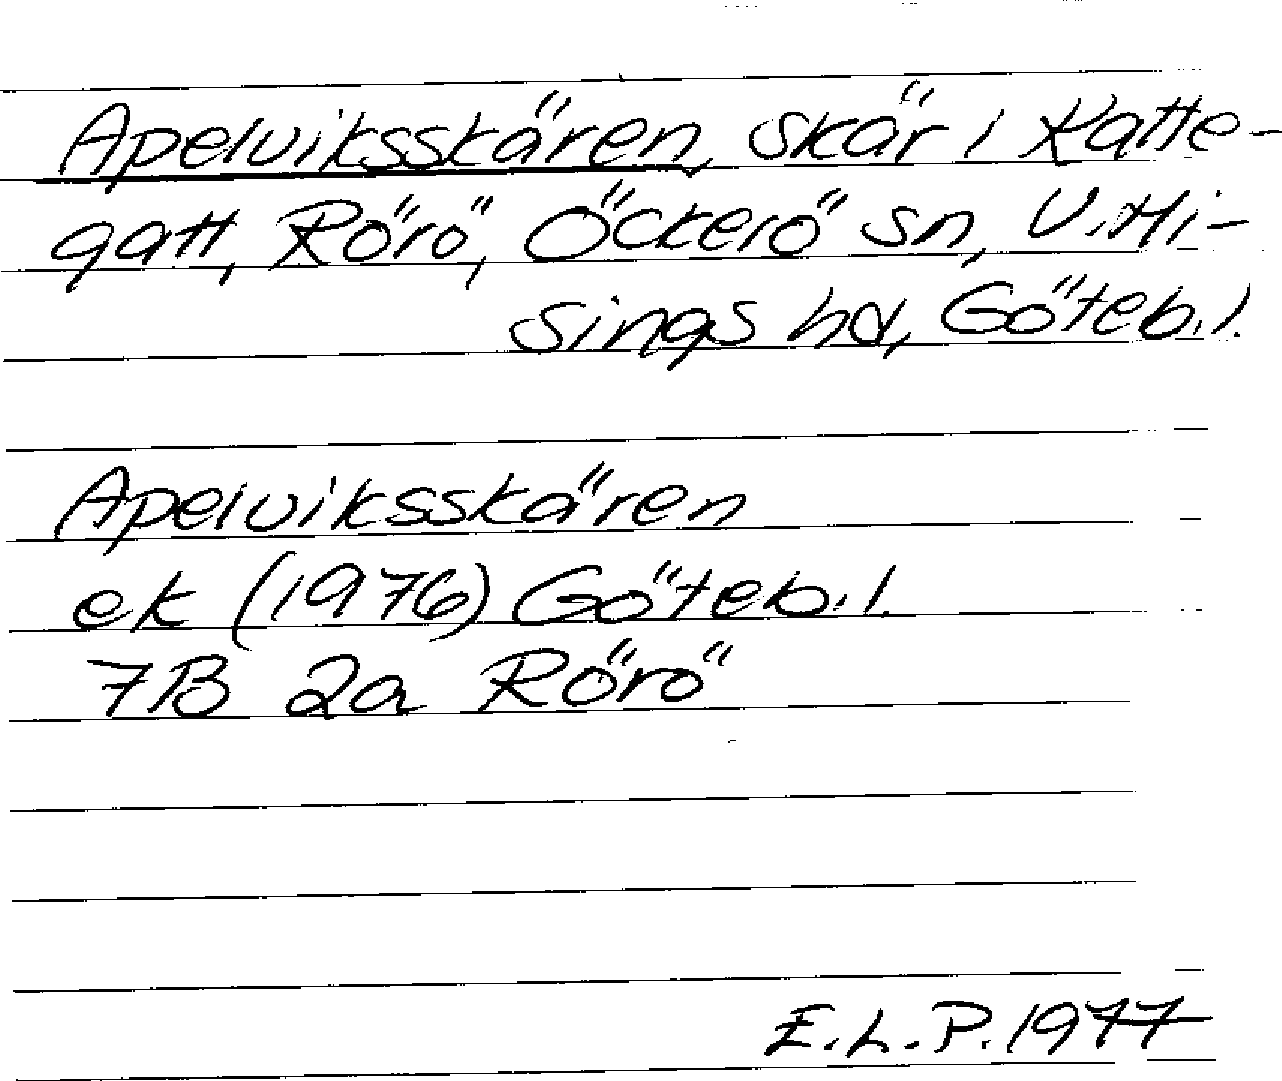 Apelviksskären, skär i Katte-
gatt, Rörö, Öckerö sn, V. Hi-
sings hd, Göteb. l.
Apelviksskären
ek (1976) Göteb. l.
7B 2a Rörö
E.L.P. 1977